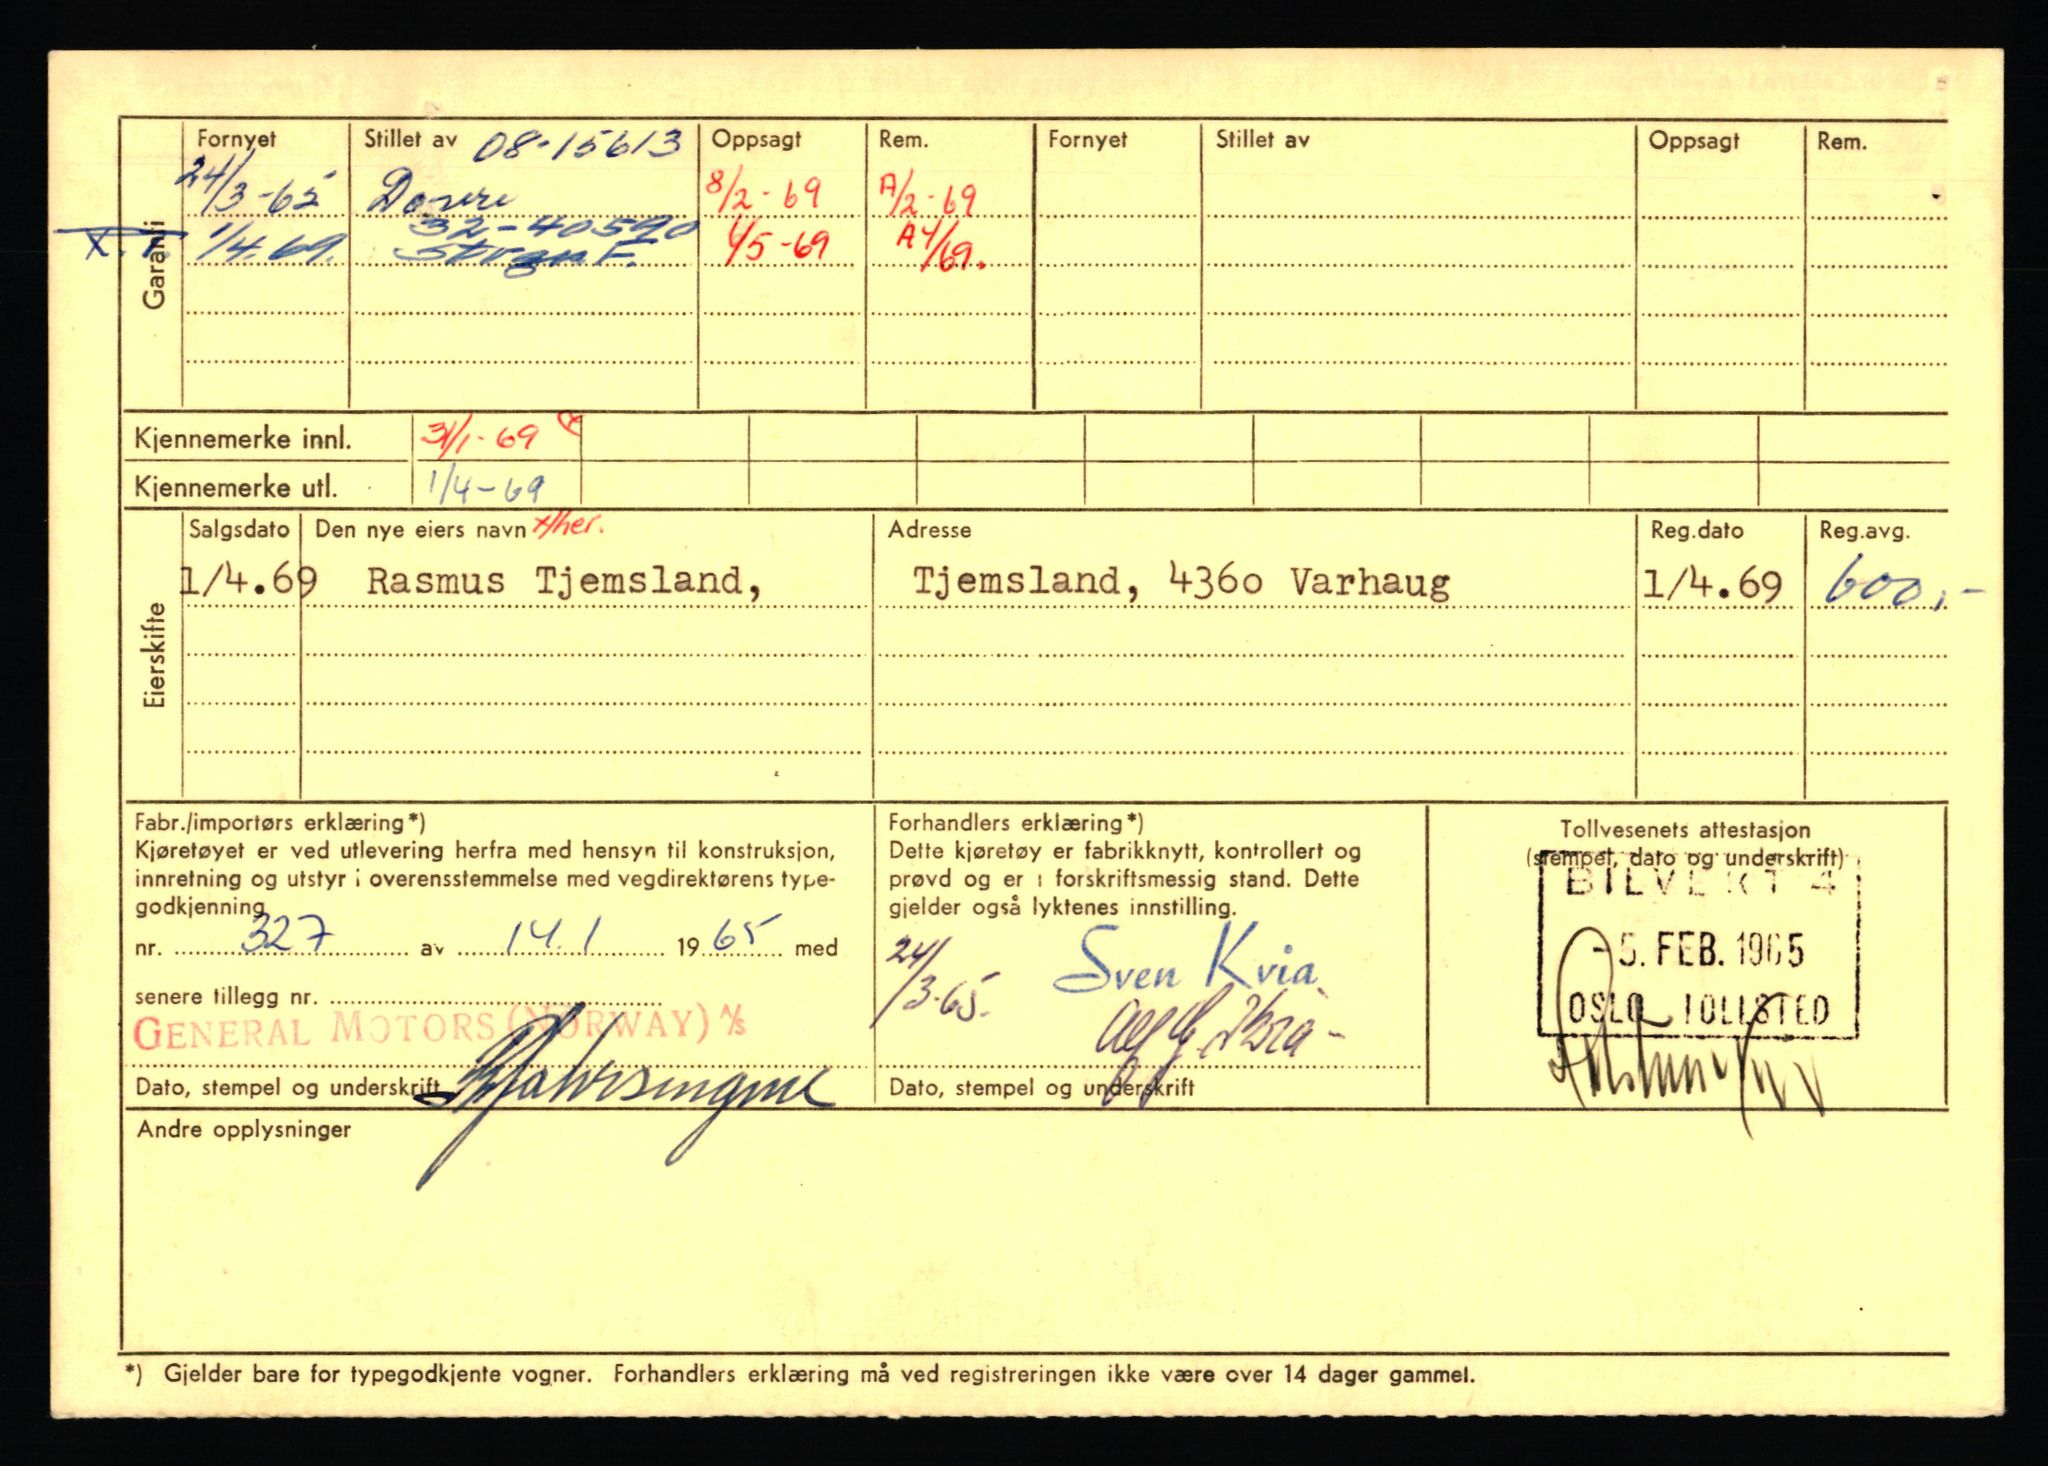 Fornyet Stillet av 08-15613 Oppsagt Rem. Fornyet Stillet av Oppsagt Rem.
24/3-65 8/2-69 A/2-69
32-40590
1/4.69. 1/5-69 A4/69.
Garanti
Kjennemerke innl. 31/1-69
Kjennemerke utl. 1/4-69
Eierskifte
Salgsdato Den nye eiers navn Adresse Reg.dato Reg.avg.
1/4.69 Rasmus Tjemsland, Tjemsland, 4360 Varhaug 1/4.69 600,-
Fabr./importørs erklæring*)
Kjøretøyet er ved utlevering herfra med hensyn til konstruksjon,
innretning og utstyr i overensstemmelse med vegdirektørens type-
godkjenning
nr. 327 av 14.1 1965 med
senere tillegg nr.
GENERAL MOTORS (NORWAY) A/S
Dato, stempel og underskrift
Forhandlers erklæring*)
Dette kjøretøy er fabrikknytt, kontrollert og
prøvd og er i forskriftsmessig stand. Dette
gjelder også lyktenes innstilling.
24/3-65. Sven Kvia
Dato, stempel og underskrift
Tollvesenets attestasjon
(stempel, dato og underskrift)
BILVEKT 4
-5. FEB. 1965
OSLO TOLLSTED
Andre opplysninger
*) Gjelder bare for typegodkjente vogner. Forhandlers erklæring må ved registreringen ikke være over 14 dager gammel.